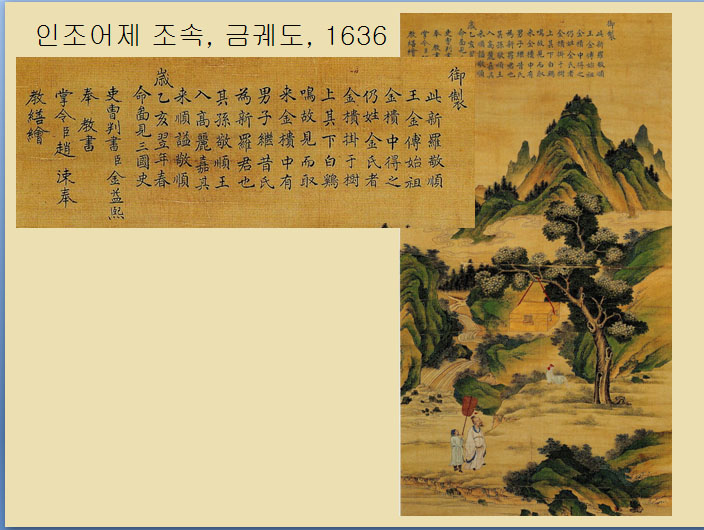 인조어제 조속, 금궤도, 1636
御製
此新羅敬順
王金傅始祖
金樻中得之
仍姓金氏者
金樻掛于樹
上其下白鷄
鳴故見而取
来金樻中有
男子継昔氏
為新羅君也
其孫敬順王
入高麗嘉其
来順諡敬順
歲乙亥翌年春
命面見三國史
吏曹判書臣金益熙
奉 教書
掌令臣趙涑奉
教繕繪